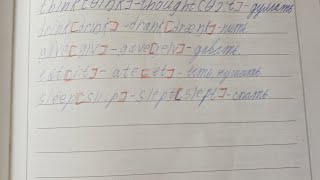 think [θink] - thought [θɔ:t] - думать
drink [drink] - drank [drænk] - пить
give [giv] - gave [geiv] - давать
eat [i:t] - ate [et] - есть, кушать
sleep [sli:p] - slept [slept] - спать